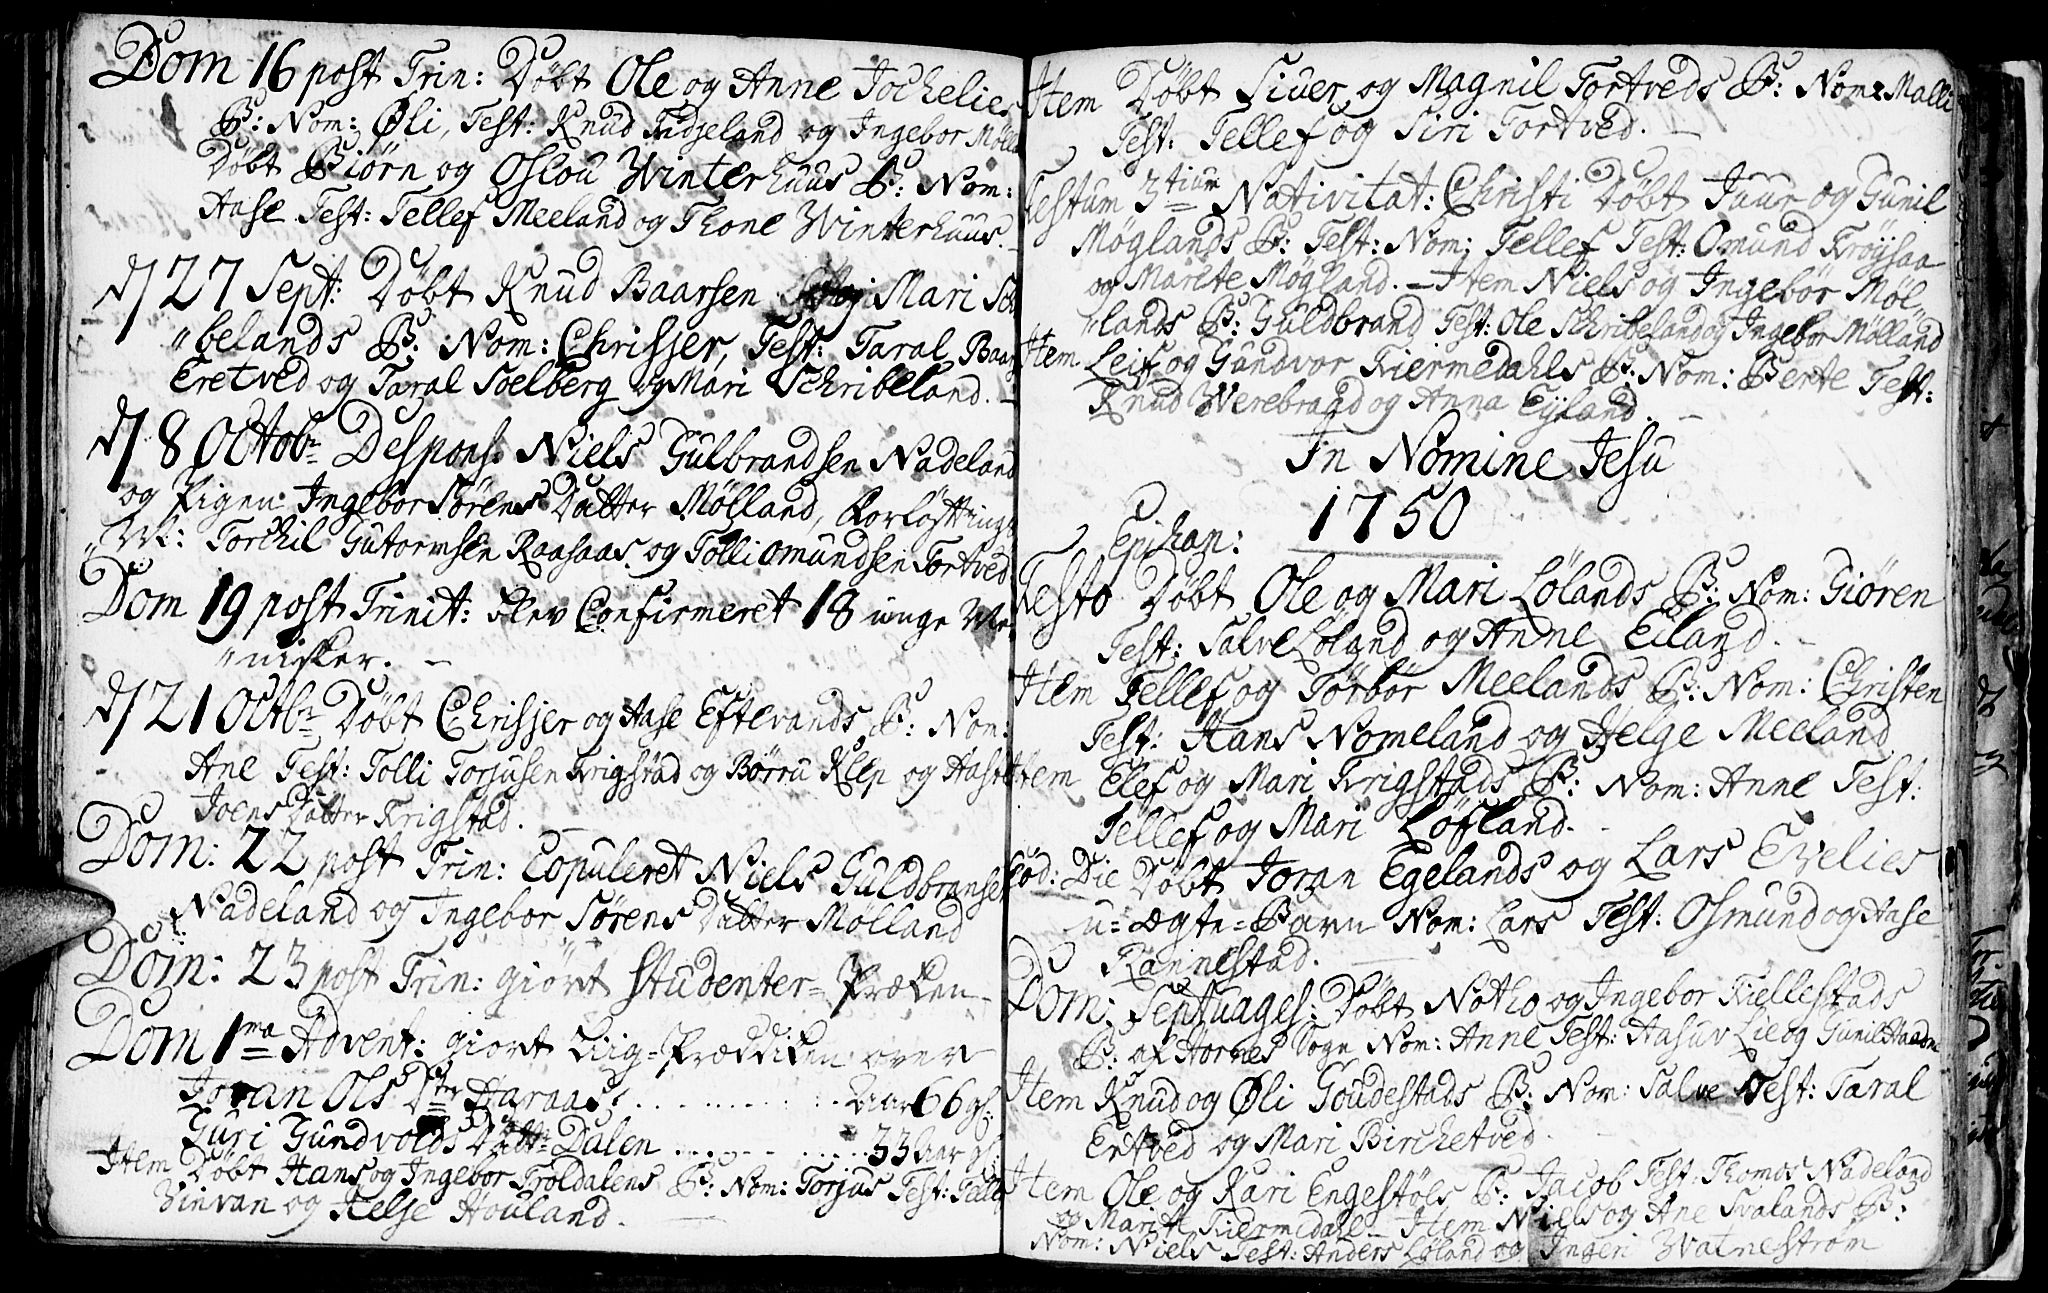 Dom 16 post Trin: Døbt Ole og Anne Jochelies
B: Nom: Øli, Test: Knud Fidjeland og Ingebor Mølla
Døbt Biörn og Oslou Winterhuus B: Nom:
Aase Test: Tellef Meeland og Thone Winterhuus. –
d 27 Sept: Døbt Knud Baarsen og Mari Sch
"belands B: Nom: Chrisjer, Test: Taral Baars
Eretved og Taral Soelberg og Mari Schribeland. –
d 8 Octobr Despons: Niels Gulbrandsen Nadeland
og Pigen Ingebor Sörens Datter Mölland, Forløftnings
"M: Torchil Gutormsen Raasaas og Tolli Omundsen Tortved
Dom 19 post Trinit: blev Confirmeret 18 unge Me
"nisker. –
d 21 Octbr Døbt Chrisjer og Aase Eftevands B: Nom:
Ane Test: Tolli Torjusen Krigstad og Börru Klep og Aase
Joens Datter Krigstad.
Dom: 22 post Trin: Copuleret Niels Guldbransen
Nadeland og Ingebor Sörens Datter Molland
Dom: 23 post Trin: giört Studenter= Præken
Dom 1ma Advent: giort Liig=Præddiken over
Joran Ols Dtr Haraas . . . . . . . . Aar 66 gl:
Guri Gundvolds Dattr Dalen . . . . . . . . 33 Aar gl:
Item Døbt Hans og Ingebor Troldalens B: Nom: Torjus Test: Tellef
Vinvan og Helje Houland.
Item Døbt Siver og Magnil Tortveds B: Nom: Malli
Test: Tellef og Siri Tortved. –
Festum 3tium Nativitat: Christi Døbt Juur og Gunil
Möglands B: Test: Nom: Tellef Test: Omund Fröysaa
og Marete Mögland. – Item Niels og Ingebör Möl-
"lands B: Guldbrand Test: Ole Schribeland og Ingebor Mölland
Item Leif og Gundvor Kiermedahls B: Nom: Berte Test:
Knud Werebrand og Anna Eyland. –
In Nomine Jesu
1750
Epihan:
Festo Døbt Ole og Mari Lölands B: Nom: Giören
Test: Salve Löland og Anne Eiland. –
Item Tellef og Törbör Meelands B: Nom: Christen
Test: Hans Nomeland og Helge Meeland
Item Elef og Mari Krigstads B: Nom: Anne Test:
Tellef og Mari Löfland.
Eod: Die Døbt Joran Egelands og Lars Evelies
u=ægte=Barn Nom: Lars Test: Osmund og Aase
Rannestad.
Dom: Septuages: Døbt Notho og Ingebor Kiellestads
B: af Hornes Sogn Nom: Anne Test: Aasuv Lie og Gunil Haaen
Item Knud og Øli Goudestads B: Nom: Salve Test: Taral
Ertved og Mari Birchetved
Item Ole og Kari Engestöls B: Jacob Test: Thomas Nadeland
og Marite Kiermedal – Item Niels og Ane Svalands B:
Nom: Niels Test: Anders Löland og Ingeri Watneström